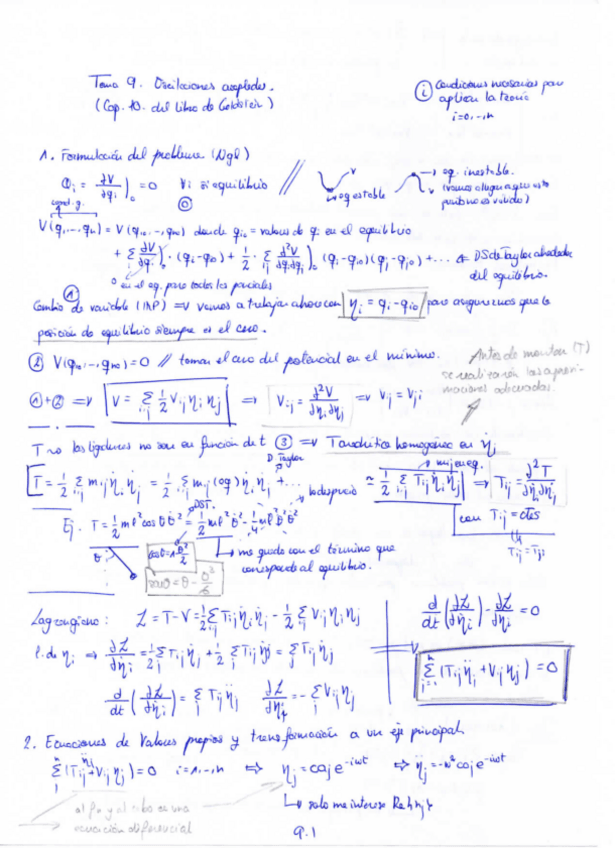 Tema 9. Oscilaciones acopladas.
(Cap. 10. del libro de Goldstein)
ⓘ Condiciones necesarias para
aplicar la teoría
i=0,..,n
1. Formulación del problema (Ngl)
Q_i = ∂V/∂q_i )_0 = 0 ∀i si equilibrio // V eq estable → eq. inestable.
coord. g. ⓪
V(q_1,..,q_n) = V(q_10,..,q_n0) donde q_i0 = valores de q_i en el equilibrio
+ Σ_i ∂V/∂q_i )_0 · (q_i-q_i0) + 1/2 · Σ_ij ∂²V/∂q_i∂q_j )_0 (q_i-q_i0)(q_j-q_j0) + ... ← DS de Taylor alrededor
del equilibrio.
0 en el eq. para todas las parciales
① Cambio de variable (IMP) ⇒ vamos a trabajar ahora con η_i = q_i - q_i0 para asegurarnos que la
posición de equilibrio siempre es el cero.
② V(q_10,..,q_n0) = 0 // tomar el cero del potencial en el mínimo.
Antes de montar (T)
se realizarán las aproxi-
maciones adecuadas.
①+② ⇒ V = Σ_ij 1/2 V_ij η_i η_j ⇒ V_ij = ∂²V/∂η_i∂η_j ⇒ V_ij = V_ji
T → las ligaduras no son en función de t ③ ⇒ T cuadrática homogénea en η̇_j
D. Taylor
T = 1/2 Σ_ij m_ij η̇_i η̇_j = 1/2 Σ_ij m_ij (0q) η̇_i η̇_j + ... lo desprecio ≃ 1/2 Σ_ij T_ij η̇_i η̇_j → T_ij = ∂²T/∂η̇_i∂η̇_j
con T_ij = ctes
T_ij = T_ji
DST.
Ej. T = 1/2 ml² cos θ θ̇² = 1/2 ml² θ̇² - 1/4 ml² θ² θ̇²
θ cosθ = 1-θ²/2 → me quedo con el término que
corresponde al equilibrio.
senθ = θ - θ³/6
Lagrangiana: ℒ = T-V = 1/2 Σ_ij T_ij η̇_i η̇_j - 1/2 Σ_ij V_ij η_i η_j
d/dt (∂ℒ/∂η̇_i) - ∂ℒ/∂η_i = 0
⇒ ∂ℒ/∂η̇_i = 1/2 Σ_j T_ij η̇_j + 1/2 Σ_j T_ij η̇_j = Σ_j T_ij η̇_j
Σ_{j=1}^n (T_ij η̈_j + V_ij η_j) = 0
d/dt (∂ℒ/∂η̇_i) = Σ_j T_ij η̈_j ∂ℒ/∂η_i = -Σ_j V_ij η_j
2. Ecuaciones de Valores propios y transformación a un eje principal.
Σ_j (T_ij η̈_j + V_ij η_j) = 0 i=1,..,n ⇨ η_j = C a_j e^{-iωt} ⇨ η̈_j = -ω² C a_j e^{-iωt}
↳ solo me interesa Re{η_j}
al fin y al cabo es una
ecuación diferencial
9.1